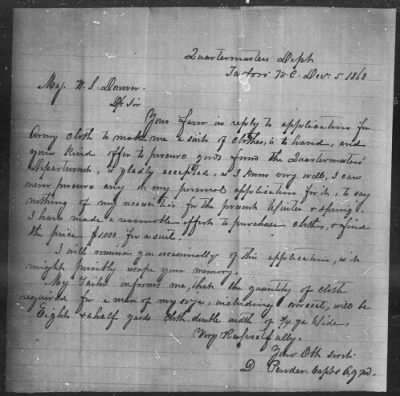 Quartermasters Dept
Tarboro N.C. Dec 5 1863
Maj. W. S. Downer
Dr Sir
Your favor in reply to application for
Army cloth to make me a suit of clothes, is to hand, and
your kind offer to procure goods from the Quartermasters
Department, is gladly accepted, as I know very well, I can
never procure any on my personal application for it, to say
nothing of my necessities for the present Winter & Spring.
I have made a reasonable effort to purchase clothes, & find
the price $1000 for a suit.
I will remind you occasionally of this application, as it
might possibly escape your memory.
My Tailor informs me, that the quantity of cloth
required for a man of my size, including overcoat, will be
Eight & half yards cloth double width or 6/4 yd Wide,
Very Respectfully,
Your Obt servt
D Pender Capt & AQM